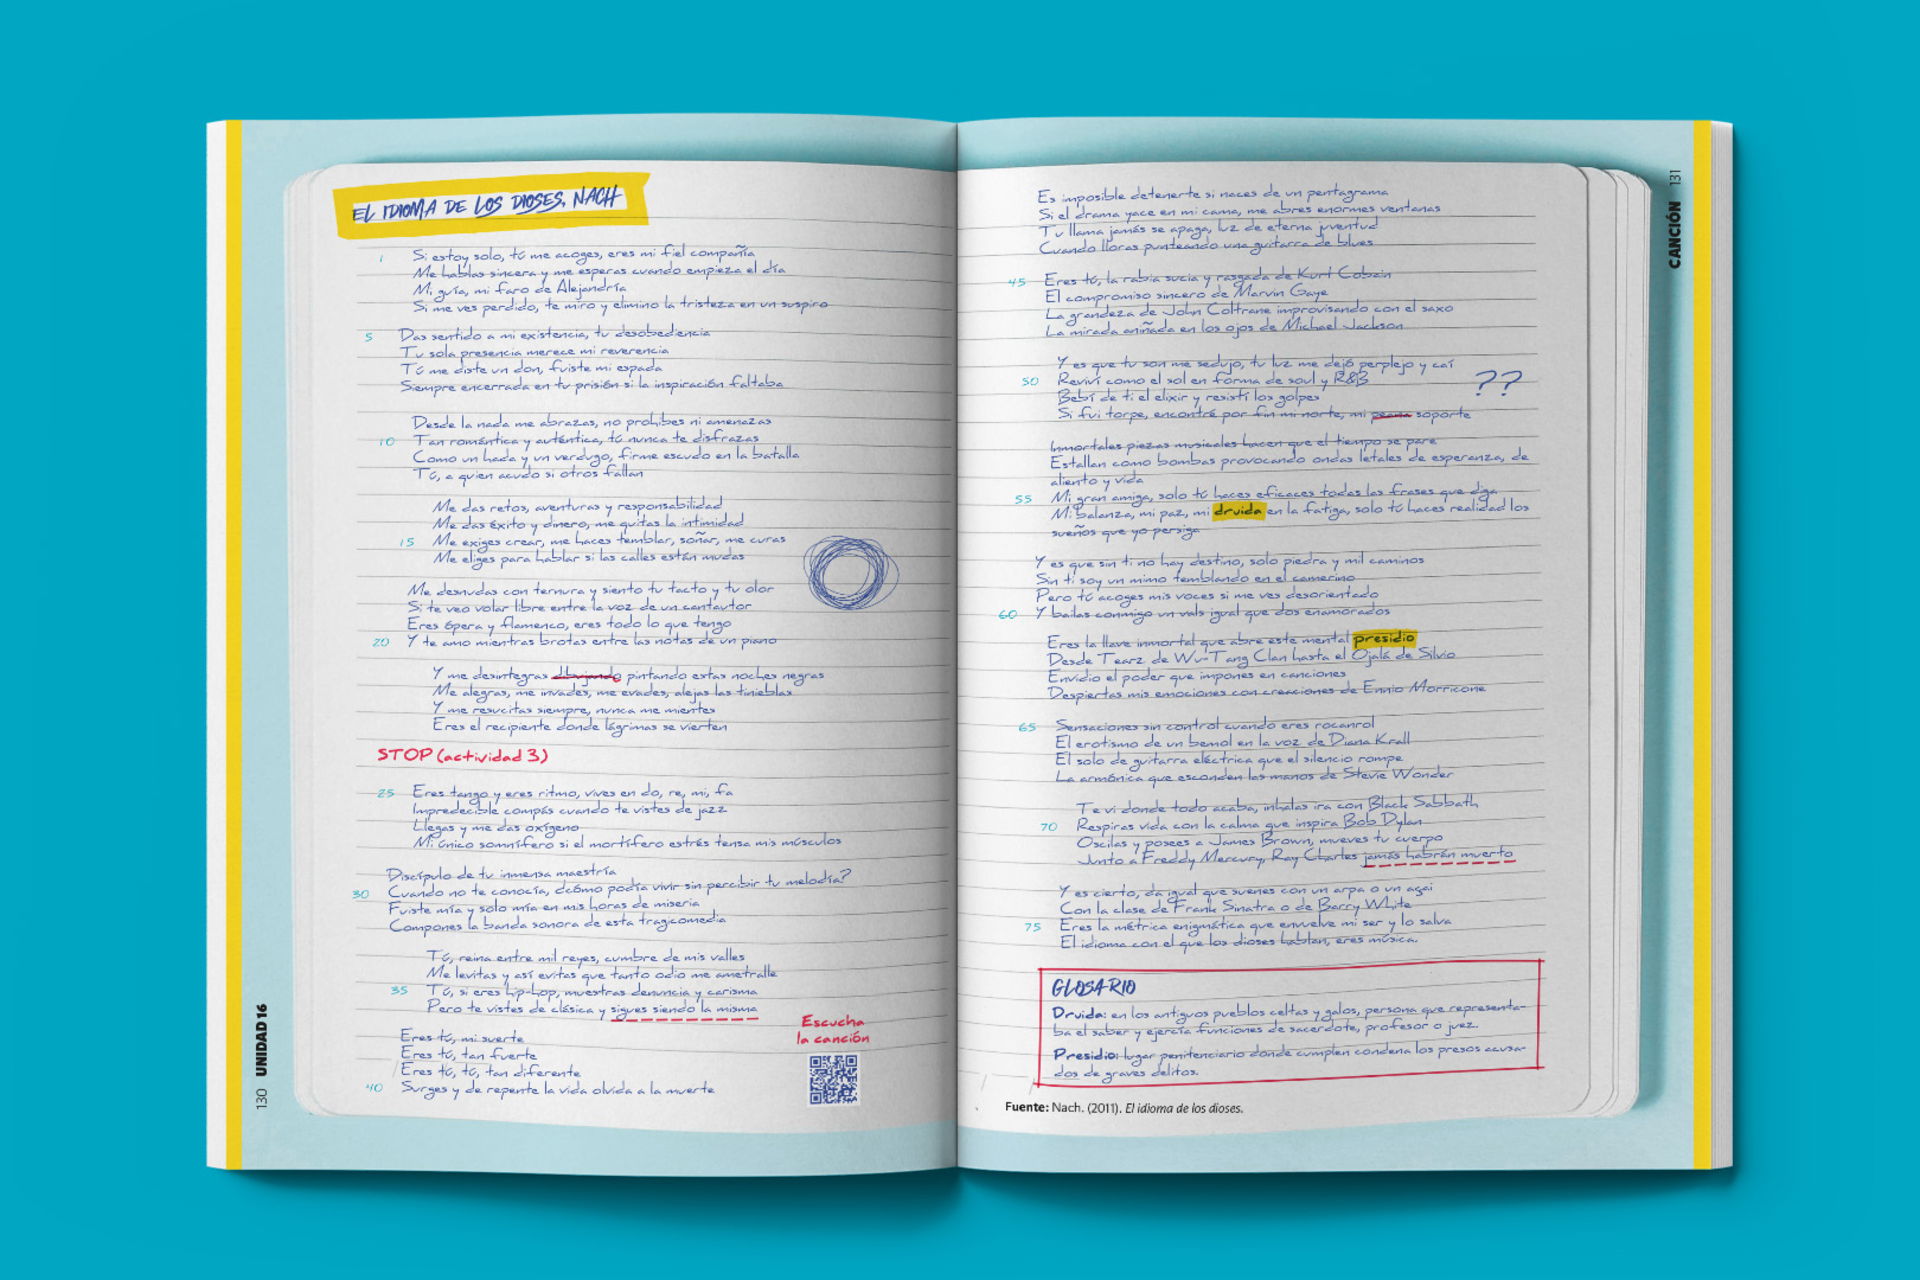 EL IDIOMA DE LOS DIOSES, NACH
1 Si estoy solo, tú me acoges, eres mi fiel compañía
Me hablas sincera y me esperas cuando empieza el día
Mi guía, mi faro de Alejandría
Si me ves perdido, te miro y elimino la tristeza en un suspiro
5 Das sentido a mi existencia, tu desobediencia
Tu sola presencia merece mi reverencia
Tú me diste un don, fuiste mi espada
Siempre encerrada en tu prisión si la inspiración faltaba
Desde la nada me abrazas, no prohíbes ni amenazas
10 Tan romántica y auténtica, tú nunca te disfrazas
Como un hada y un verdugo, firme escudo en la batalla
Tú, a quien acudo si otros fallan
Me das retos, aventuras y responsabilidad
Me das éxito y dinero, me quitas la intimidad
15 Me exiges crear, me haces temblar, soñar, me curas
Me eliges para hablar si las calles están mudas
Me desnudas con ternura y siento tu tacto y tu olor
Si te veo volar libre entre la voz de un cantautor
Eres ópera y flamenco, eres todo lo que tengo
20 Y te amo mientras brotas entre las notas de un piano
Y me desintegras dibujando pintando estas noches negras
Me alegras, me invades, me evades, alejas las tinieblas
Y me resucitas siempre, nunca me mientes
Eres el recipiente donde lágrimas se vierten
STOP (actividad 3)
25 Eres tango y eres ritmo, vives en do, re, mi, fa
Impredecible compás cuando te vistes de jazz
Llegas y me das oxígeno
Mi único somnífero si el mortífero estrés tensa mis músculos
Discípulo de tu inmensa maestría
30 Cuando no te conocía, ¿cómo podía vivir sin percibir tu melodía?
Fuiste mía y solo mía en mis horas de miseria
Compones la banda sonora de esta tragicomedia
Tú, reina entre mil reyes, cumbre de mis valles
Me levitas y así evitas que tanto odio me ametralle
35 Tú, si eres hip-hop, muestras denuncia y carisma
Pero te vistes de clásica y sigues siendo la misma
Eres tú, mi suerte
Eres tú, tan fuerte
Eres tú, tú, tan diferente
40 Surges y de repente la vida olvida a la muerte
Escucha
la canción
130 UNIDAD 16
Es imposible detenerte si naces de un pentagrama
Si el drama yace en mi cama, me abres enormes ventanas
Tu llama jamás se apaga, luz de eterna juventud
Cuando lloras punteando una guitarra de blues
45 Eres tú, la rabia sucia y rasgada de Kurt Cobain
El compromiso sincero de Marvin Gaye
La grandeza de John Coltrane improvisando con el saxo
La mirada aniñada en los ojos de Michael Jackson
Y es que tu son me sedujo, tu luz me dejó perplejo y caí
50 Reviví como el sol en forma de soul y R&B
Bebí de ti el elixir y resistí los golpes
Si fui torpe, encontré por fin mi norte, mi peana soporte
??
Inmortales piezas musicales hacen que el tiempo se pare
Estallan como bombas provocando ondas letales de esperanza, de
aliento y vida
55 Mi gran amiga, solo tú haces eficaces todas las frases que diga
Mi balanza, mi paz, mi druida en la fatiga, solo tú haces realidad los
sueños que yo persiga
Y es que sin ti no hay destino, solo piedra y mil caminos
Sin ti soy un mimo temblando en el camerino
Pero tú acoges mis voces si me ves desorientado
60 Y bailas conmigo un vals igual que dos enamorados
Eres la llave inmortal que abre este mental presidio
Desde Tearz de Wu-Tang Clan hasta el Ojalá de Silvio
Envidio el poder que impones en canciones
Despiertas mis emociones con creaciones de Ennio Morricone
65 Sensaciones sin control cuando eres rocanrol
El erotismo de un bemol en la voz de Diana Krall
El solo de guitarra eléctrica que el silencio rompe
La armónica que esconden las manos de Stevie Wonder
Te vi donde todo acaba, inhalas ira con Black Sabbath
70 Respiras vida con la calma que inspira Bob Dylan
Oscilas y posees a James Brown, mueves tu cuerpo
Junto a Freddy Mercury, Ray Charles jamás habrán muerto
Y es cierto, da igual que suenes con un arpa o un agai
Con la clase de Frank Sinatra o de Barry White
75 Eres la métrica enigmática que envuelve mi ser y lo salva
El idioma con el que los dioses hablan, eres música.
GLOSARIO
Druida: en los antiguos pueblos celtas y galos, persona que representa-
ba el saber y ejercía funciones de sacerdote, profesor o juez.
Presidio: lugar penitenciario donde cumplen condena los presos acusa-
dos de graves delitos.
Fuente: Nach. (2011). El idioma de los dioses.
CANCIÓN 131